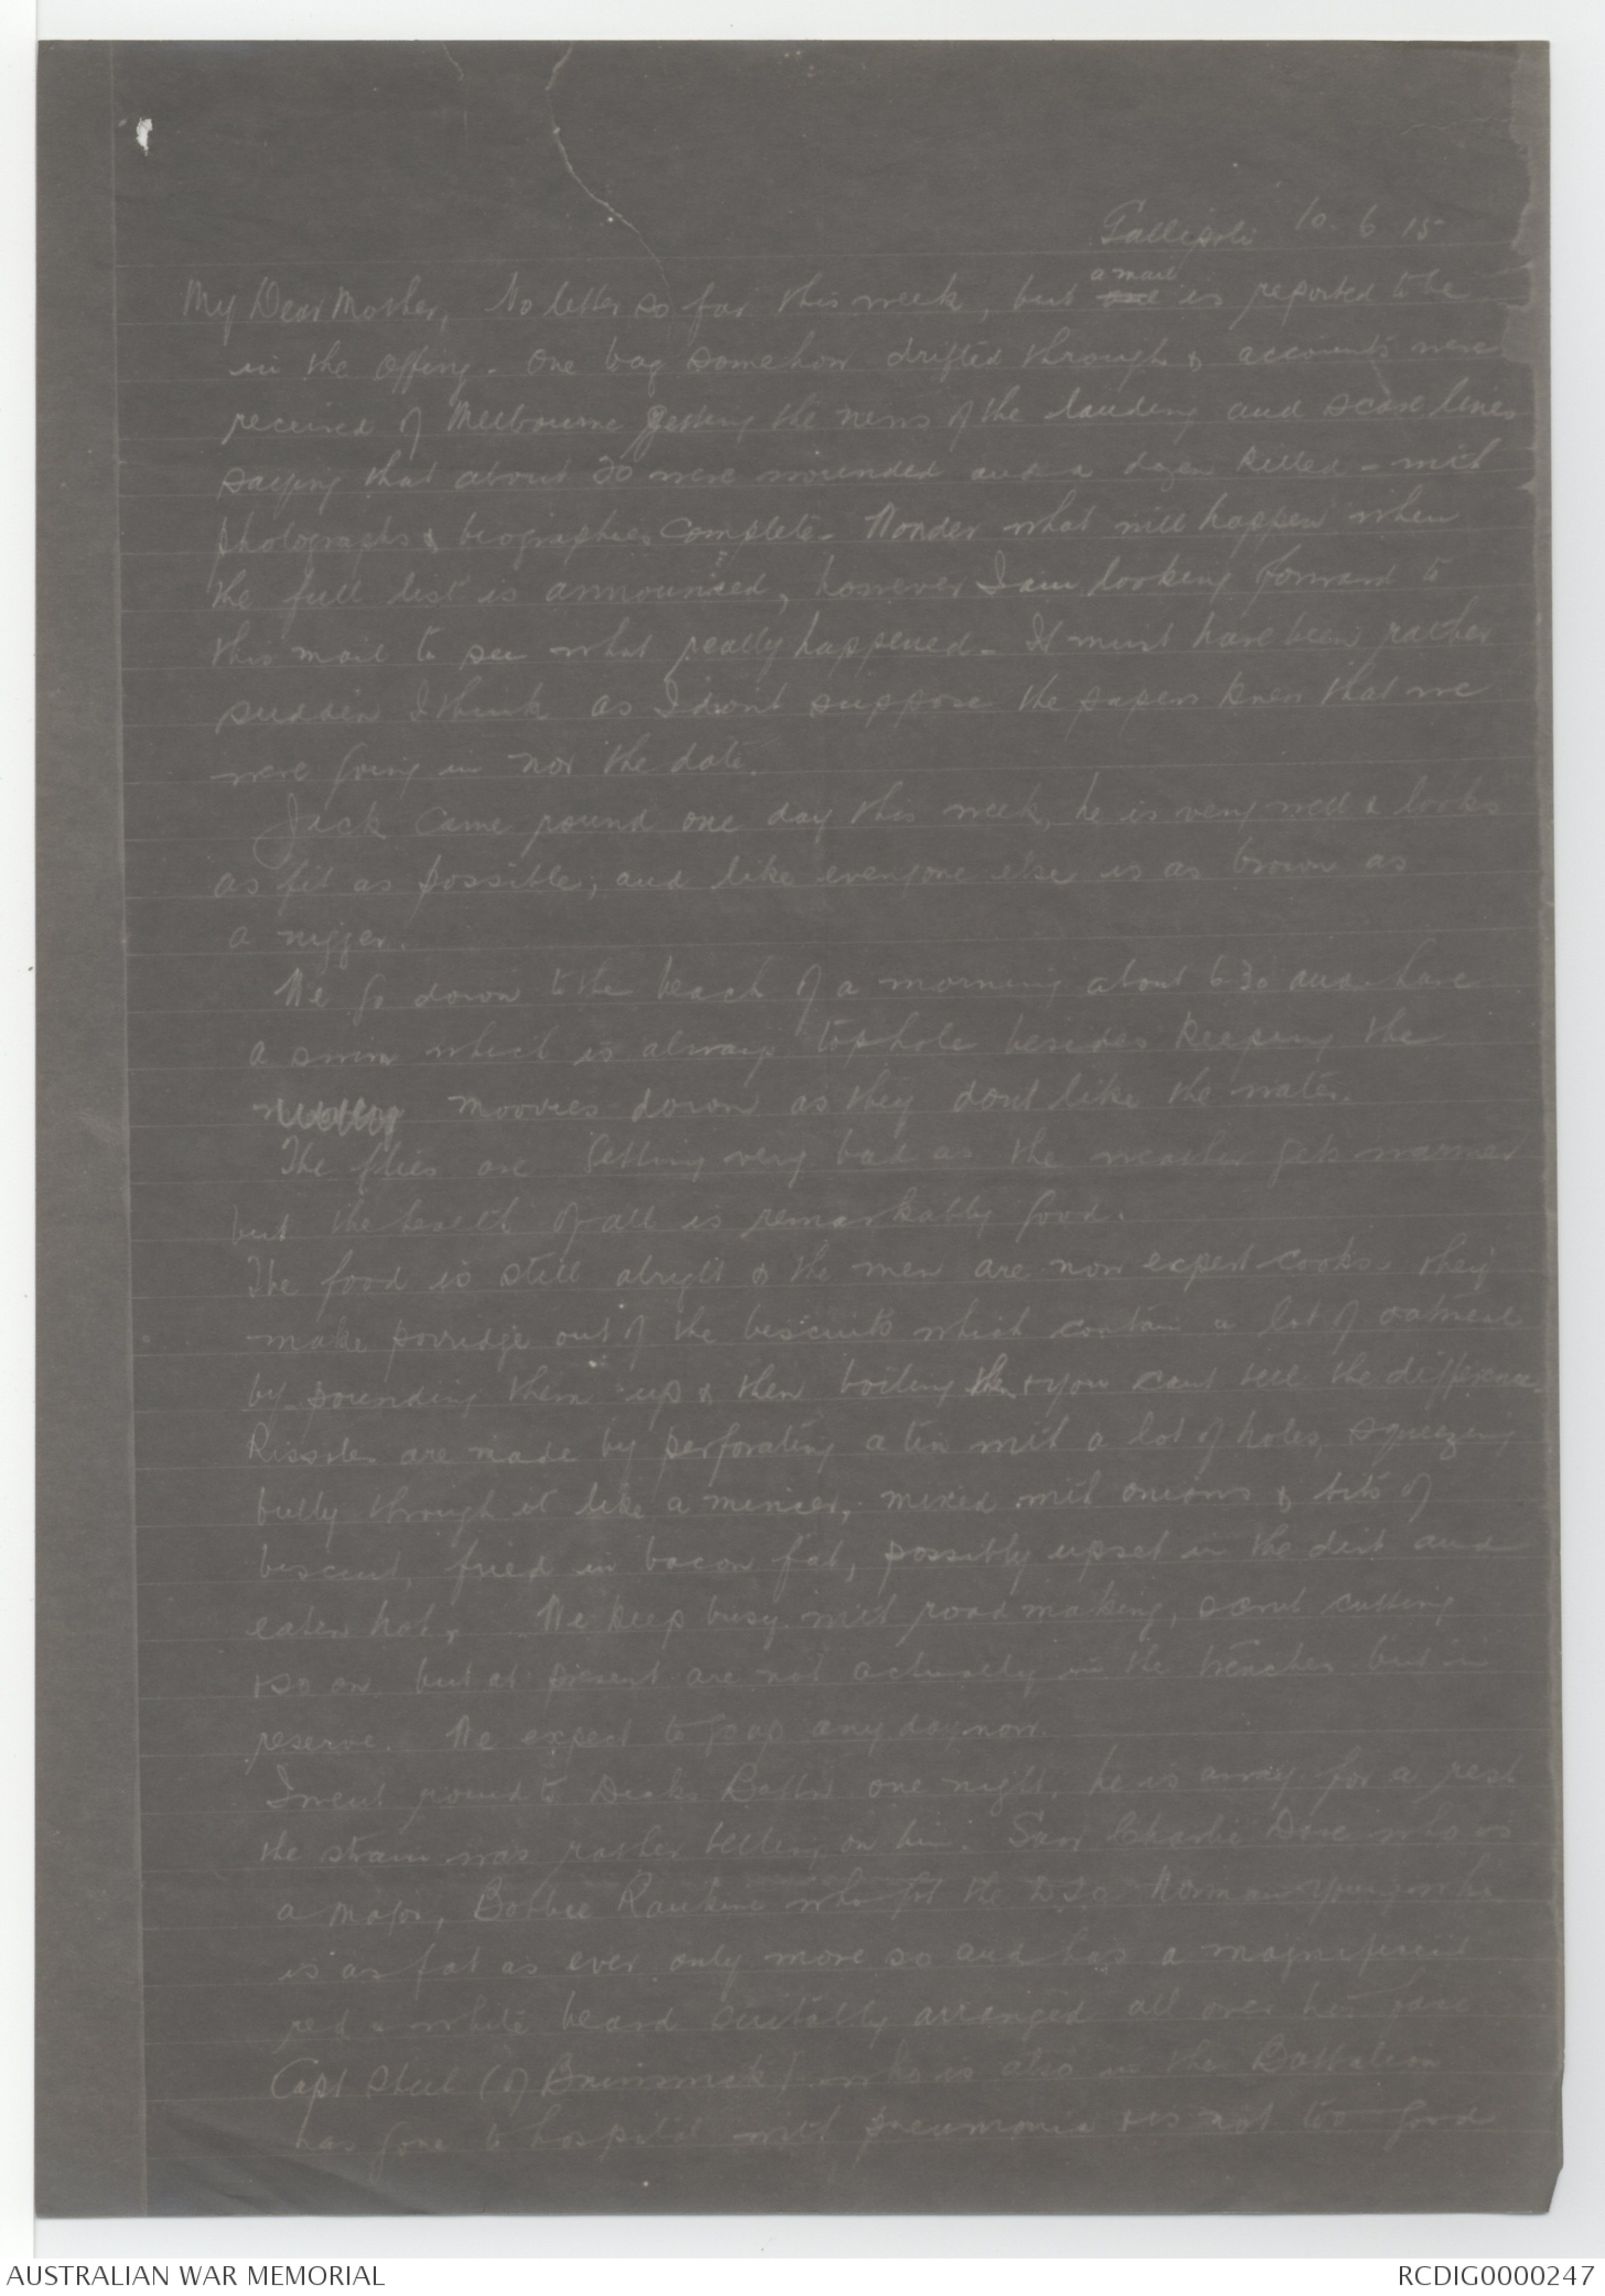 Gallipoli 10. 6 15
a mail
My Dear Mother, No letter so far this week, but is reported to be
in the offing. One bag somehow drifted through & accounts were
received of Melbourne getting the news of the landing and scare lines
saying that about 20 were wounded and a dozen killed – with
photographs & biographies complete. Wonder what will happen when
the full list is announced, however I am looking forward to
this mail to see what really happened – It must have been rather
sudden I think as I don't suppose the papers knew that we
were going in nor the date.
Jack came round one day this week, he is very well & looks
as fit as possible, and like everyone else is as brown as
a nigger.
We go down to the beach of a morning about 6.30 and have
a swim which is always tophole besides keeping the
moovies down as they dont like the water.
The flies are getting very bad as the weather gets warmer
but the health of all is remarkably good.
The food is still alright & the men are now expert cooks. they
make porridge out of the biscuits which contain a lot of oatmeal
by pounding them up & then boiling them & you cant tell the difference.
Rissoles are made by perforating a tin with a lot of holes, squeezing
bully through it like a mincer, mixed with onions & bits of
biscuit, fried in bacon fat, possibly upset in the dirt and
eaten hot. We keep busy with road making, scrub cutting
& so on but at present are not actually in the trenches but in
reserve. We expect to go up any day now.
I went round to Dicks Battn one night, he is away for a rest
the strain was rather telling on him. Saw Charlie Dare who is
a major, Bobbie Rankine who got the DSO Norman Young who
is as fat as ever only more so and has a magnificent
red & white beard suitably arranged all over his face
Capt Steel (of Brunswick) who is also in the Battalion
has gone to hospital with pneumonia & is not too good
AUSTRALIAN WAR MEMORIAL
RCDIG0000247